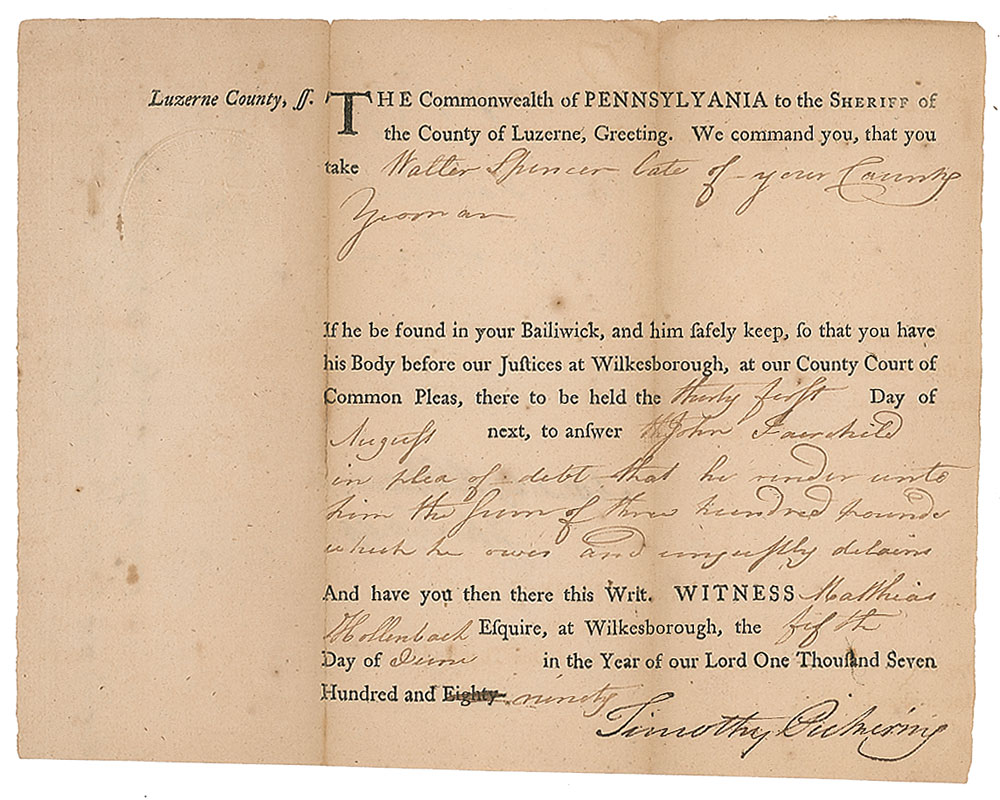 Luzerne County, ſſ. THE Commonwealth of PENNSYLVANIA to the SHERIFF of
the County of Luzerne, Greeting. We command you, that you
take Walter Spencer late of your County
Yeoman
If he be found in your Bailiwick, and him ſafely keep, ſo that you have
his Body before our Juſtices at Wilkesborough, at our County Court of
Common Pleas, there to be held the thirty firſt Day of
Auguſt next, to anſwer John Fairchild
in plea of debt that he render unto
him the Sum of three hundred pounds
which he owes and unjuſtly detains
And have you then there this Writ. WITNESS Matthias
Hollenback Eſquire, at Wilkesborough, the fifth
Day of June in the Year of our Lord One Thouſand Seven
Hundred and Eighty ninety
Timothy Pickering